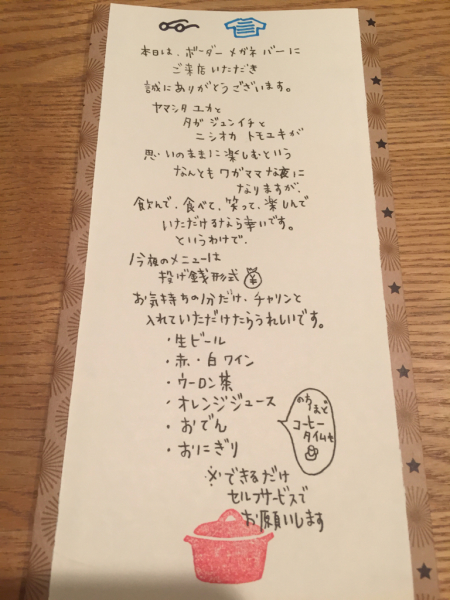 本日は、ボーダーメガネバーに
ご来店いただき
誠にありがとうございます。
ヤマシタ ユカと
タガ ジュンイチと
ニシオカ トモユキが
思いのままに楽しむという
なんともワガママな夜に
なりますが、
飲んで、食べて、笑って、楽しんで
いただけるなら幸いです。
というわけで、
今夜のメニューは
投げ銭形式
お気持ちの分だけ、チャリンと
入れていただけたらうれしいです。
・生ビール
・赤・白ワイン
・ウーロン茶
・オレンジジュース
・おでん
・おにぎり
のちほど
コーヒー
タイムも
※できるだけ
セルフサービスで
お願いします